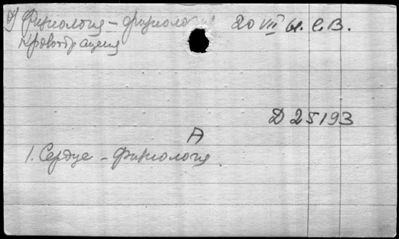 9) Физиология - физиология 20 VII ы. С.В.
кровообращения
Д 25193
А
1. Сердце - физиология.